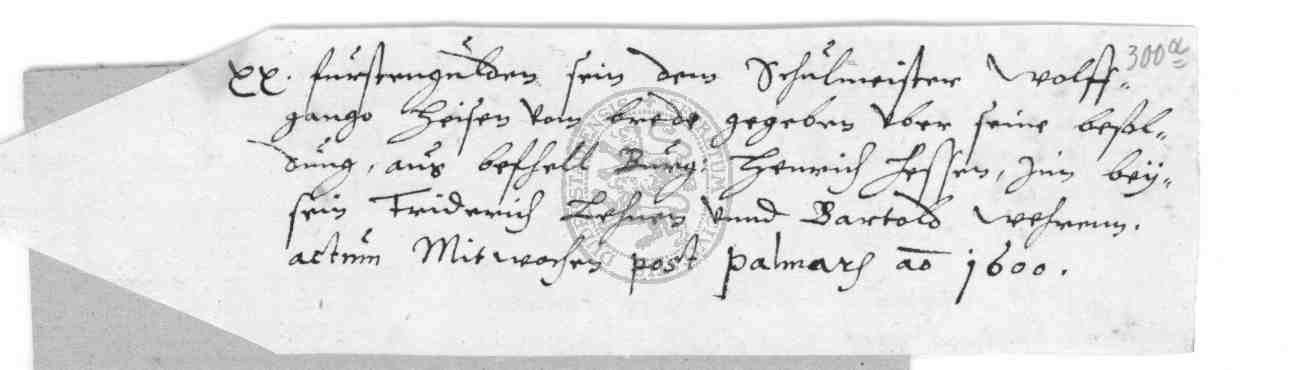 300a
XX. fürstengülden sein dem Schülmeister Wolff-
gango Heisen vom brede gegeben vber seine besol-
düng, aüs befehll Bürg: Henrich Hessen, Jnn bey-
sein Friderich Lehnen vnnd Bartold Wehrenn.
actum Mitwochen post palmarum ao 1600.